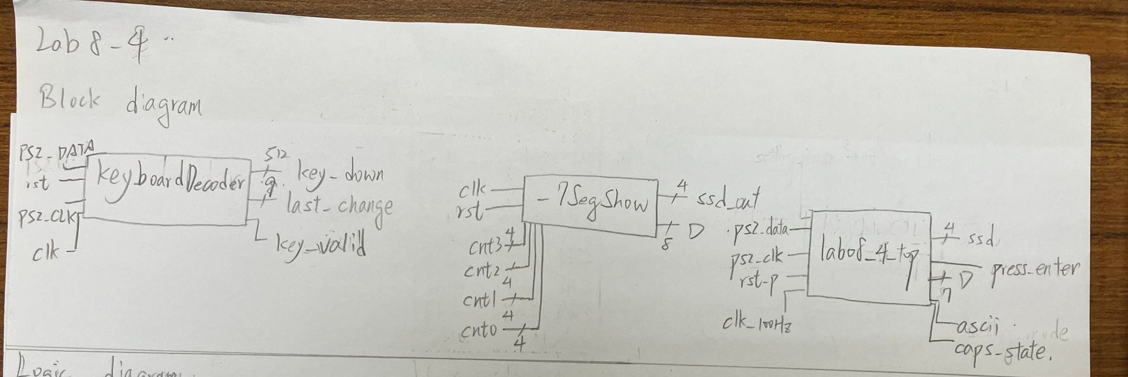 Lab 8-4
Block diagram
PS2_DATA
rst
PS2_CLK
clk
keyboardDecoder
512
key_down
9
last_change
key_valid
clk
rst
cnt3 4
cnt2
cnt1 4
cnt0 4
4
_7SegShow
4
ssd_out
8
D
ps2_data
ps2_clk
rst_p
clk_100Hz
lab08_4_top
4
ssd
press_enter
D
7
ascii
caps_state.
Logic diagram